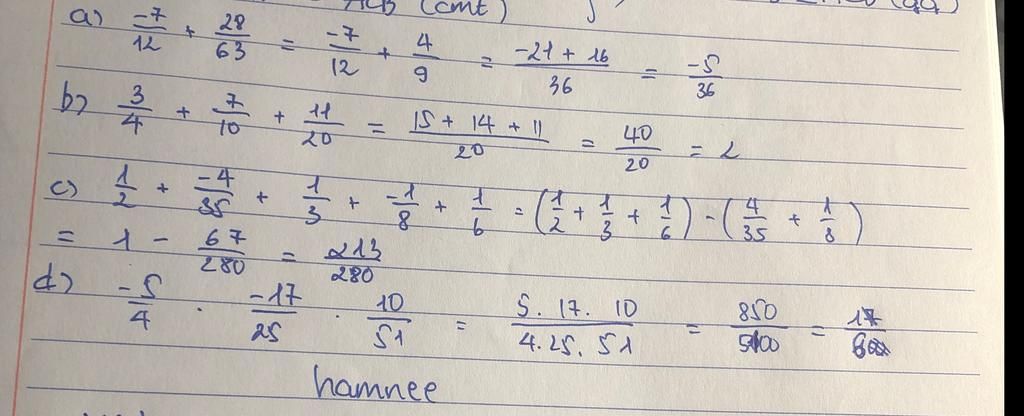 ACB (cmt)
a) -7/12 + 28/63 = -7/12 + 4/9 = -21 + 16/36 = -5/36
b) 3/4 + 7/10 + 11/20 = 15 + 14 + 11/20 = 40/20 = 2
c) 1/2 + -4/35 + 1/3 + -1/8 + 1/6 = (1/2 + 1/3 + 1/6) - (4/35 + 1/8)
= 1 - 67/280 = 213/280
d) -5/4 . -17/25 . 10/51 = 5. 17. 10/4. 25. 51 = 850/5100 =
hamnee